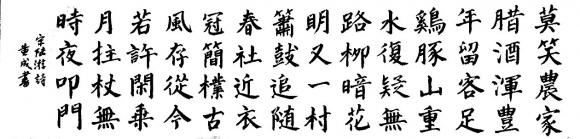 莫笑農家
腊酒渾豐
年留客足
鷄豚山重
水復疑無
路柳暗花
明又一村
簫鼓追随
春社近衣
冠簡樸古
風存從今
若許閑乘
月拄杖無
時夜叩門
宋陸游詩
成書